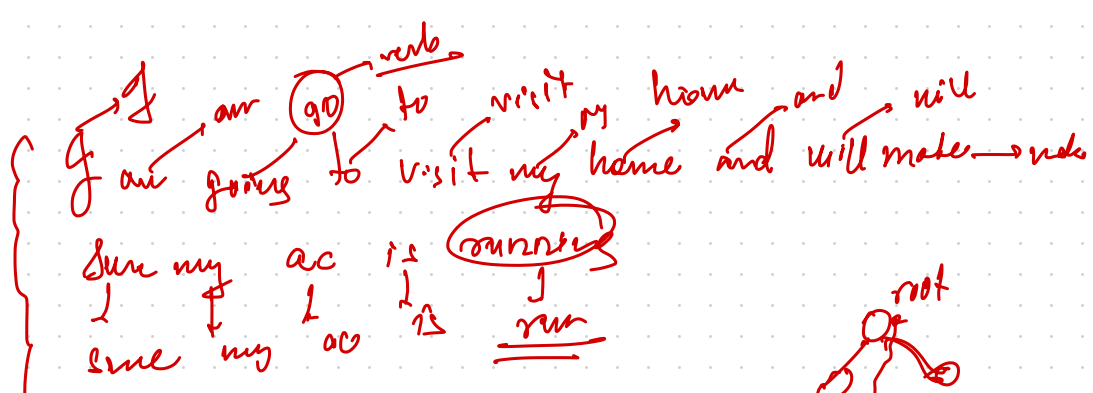 verb
I am go to visit my home and will
I am going to visit my home and will make → make
Sure my ac is running
sure my ac is run
root